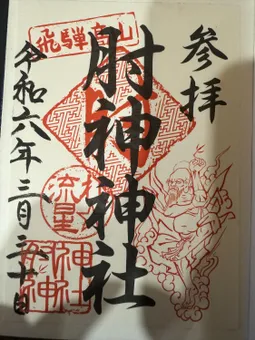 参拝
肘神神社
飛騨高山
令和六年三月三十日
流星
肘神神社